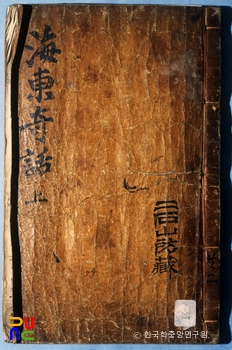 海東奇話 上
山房藏
© 한국학중앙연구원